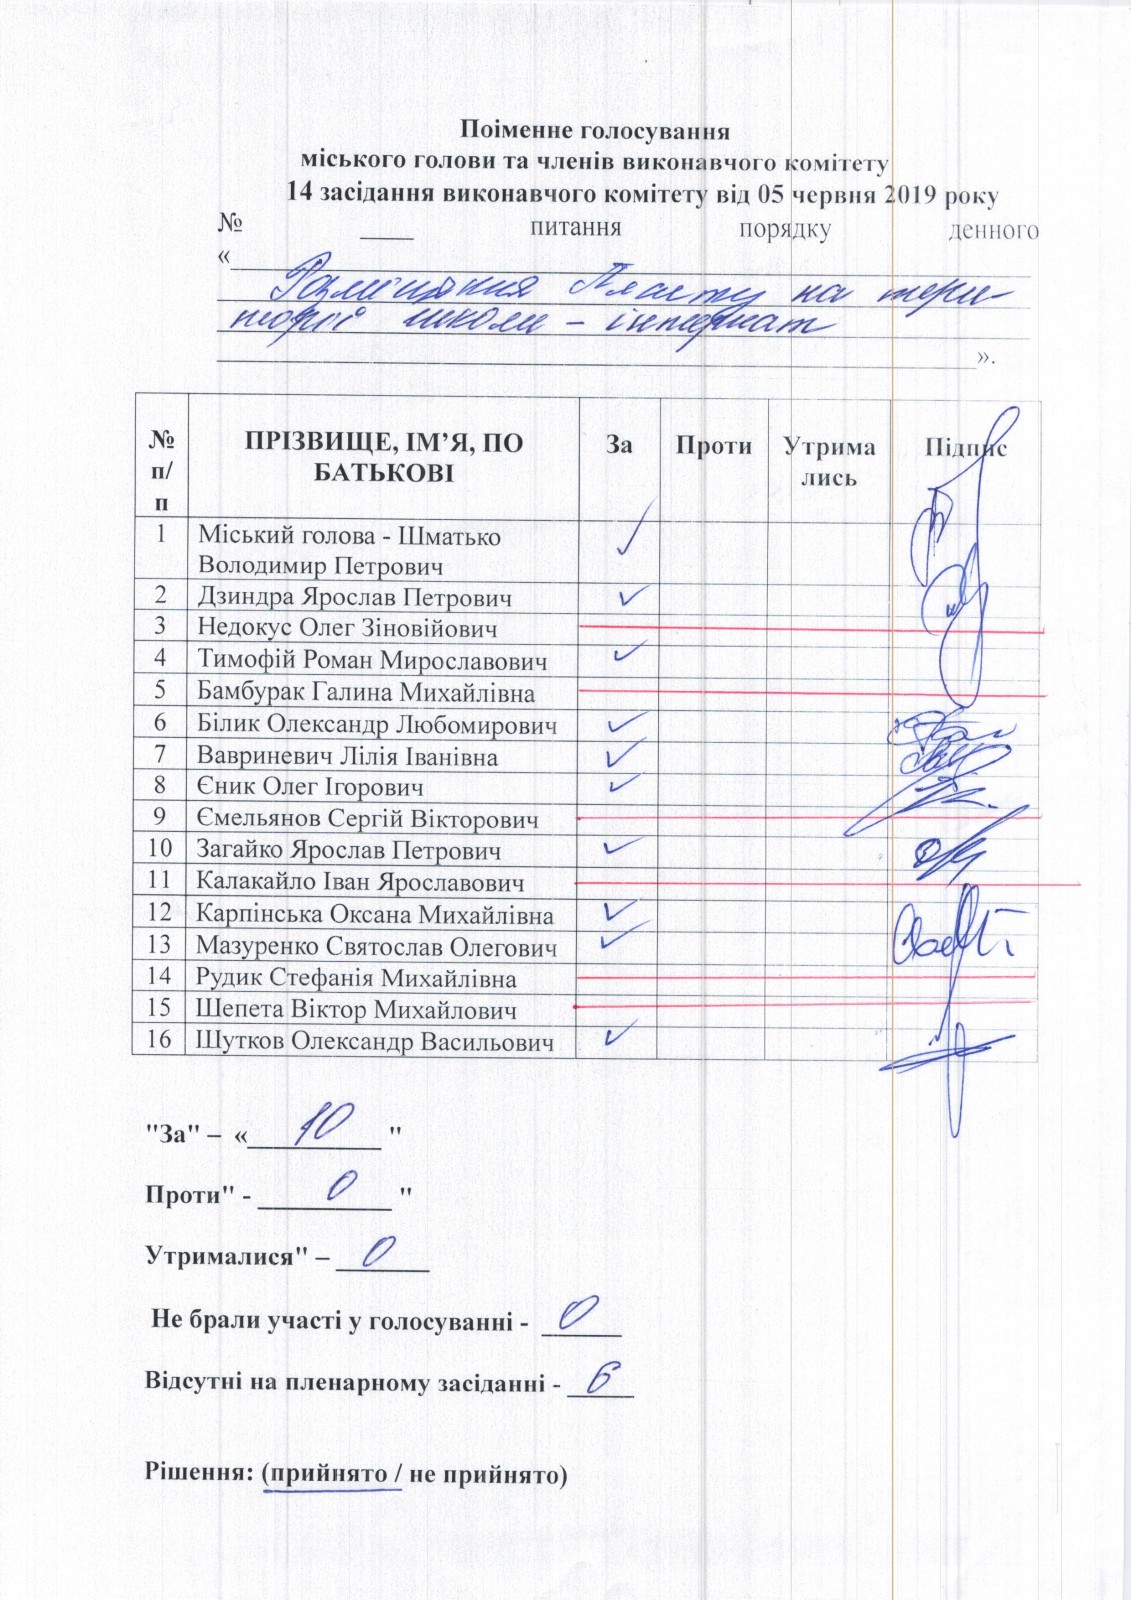 Поіменне голосування
міського голови та членів виконавчого комітету
14 засідання виконавчого комітету від 05 червня 2019 року
№ ____ питання порядку денного
«
Розміщення Пласту на тери-
торії школи - інтернат
».
№ п/п ПРІЗВИЩЕ, ІМ’Я, ПО БАТЬКОВІ За Проти Утрима лись Підпис
1 Міський голова - Шматько
Володимир Петрович
2 Дзиндра Ярослав Петрович
3 Недокус Олег Зіновійович
4 Тимофій Роман Мирославович
5 Бамбурак Галина Михайлівна
6 Білик Олександр Любомирович
7 Вавриневич Лілія Іванівна
8 Єник Олег Ігорович
9 Ємельянов Сергій Вікторович
10 Загайко Ярослав Петрович
11 Калакайло Іван Ярославович
12 Карпінська Оксана Михайлівна
13 Мазуренко Святослав Олегович
14 Рудик Стефанія Михайлівна
15 Шепета Віктор Михайлович
16 Шутков Олександр Васильович
"За" – « 10 "
Проти" - 0 "
Утрималися" – 0
Не брали участі у голосуванні - 0
Відсутні на пленарному засіданні - 6
Рішення: (прийнято / не прийнято)